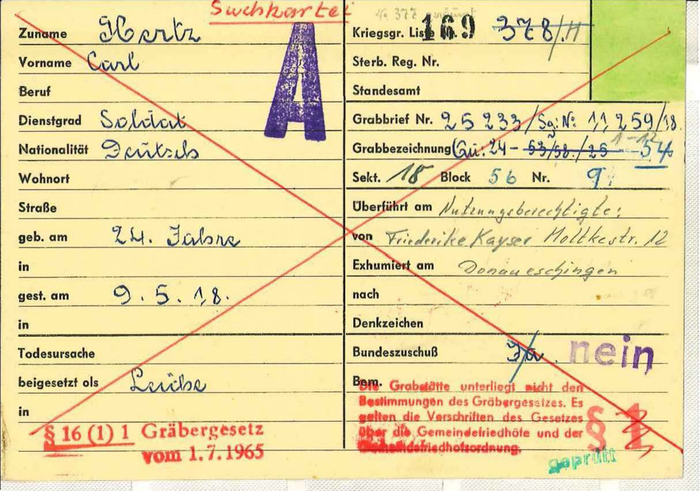 Suchkartei
Zuname Hertz
Vorname Carl
Beruf
Dienstgrad Soldat
Nationalität Deutsch
Wohnort
Straße
geb. am 24. Jahre
in
gest. am 9.5.18.
in
Todesursache
beigesetzt als Leiche
in
§ 16 (1) 1 Gräbergesetz
vom 1.7.1965
A
No 377
Kriegsgr. List 169 378/H
Sterb. Reg. Nr.
Standesamt
Grabbrief Nr. 25 233/Sg: No 11,259/18
1-12
Grabbezeichnung Qu: 24 - 53/58./25 - 54
Sekt. 18 Block 56 Nr. 9
Überführt am Nutzungsberechtigte:
von Friederike Kayser Moltkestr. 12
Exhumiert am Donaueschingen
nach
Denkzeichen
Bundeszuschuß Ja nein
Bem.
Die Grabstätte unterliegt nicht den
Bestimmungen des Gräbergesetzes. Es
gelten die Vorschriften des Gesetzes
über die Gemeindefriedhöfe und der
Gemeindefriedhofsordnung.
§ 1
geprüft